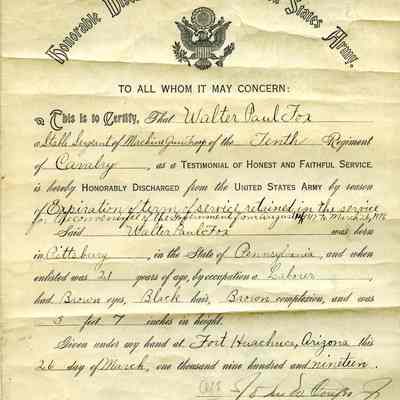 Honorable Dis States Army.
TO ALL WHOM IT MAY CONCERN:
This is to Certify, That Walter Paul Fox
a Stable Sergeant of Machine Gun Troop of the Tenth Regiment
of Cavalry, as a TESTIMONIAL OF HONEST AND FAITHFUL SERVICE,
is hereby HONORABLY DISCHARGED from the UNITED STATES ARMY by reason
of Expiration of term of service retained in the service
for convenience of the Government from
Said Walter Paul Fox was born
in Pittsburg, in the State of Pennsylvania, and when
enlisted was 21 years of age, by occupation a Laborer,
had Brown eyes, Black hair, Brown complexion, and was
5 feet 7 inches in height.
Given under my hand at Fort Huachuca, Arizona this
26 day of March, one thousand nine hundred and nineteen.